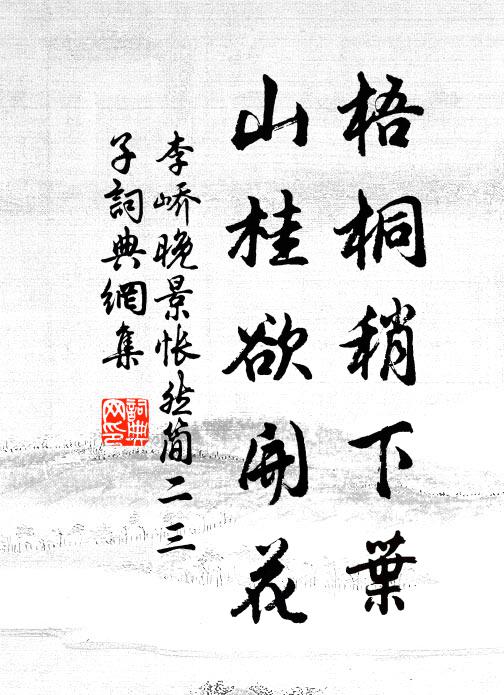 梧桐稍下葉
山桂欲開花
李嶠晚景悵然簡二三
子詞典網集
詞典网印